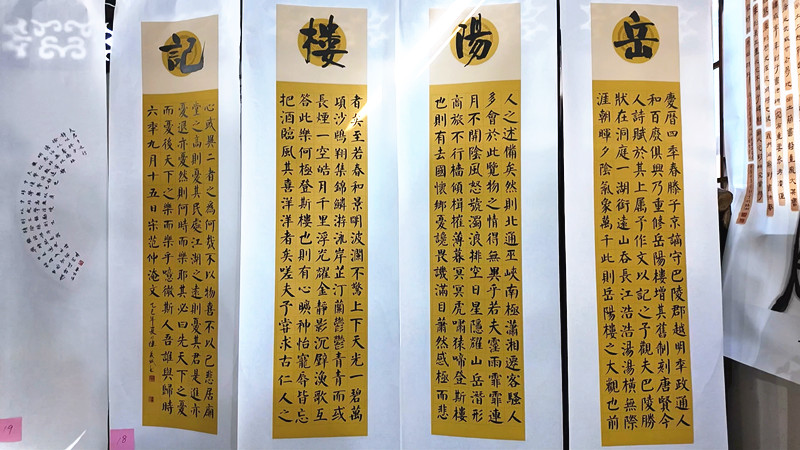 岳
慶曆四年春滕子京謫守巴陵郡越明年政通人
和百廢俱興乃重修岳陽樓增其舊制刻唐賢今
人詩賦於其上屬予作文以記之予觀夫巴陵勝
狀在洞庭一湖銜遠山吞長江浩浩湯湯橫無際
涯朝暉夕陰氣象萬千此則岳陽樓之大觀也前
陽
人之述備矣然則北通巫峽南極瀟湘遷客騷人
多會於此覽物之情得無異乎若夫霪雨霏霏連
月不開陰風怒號濁浪排空日星隱耀山岳潛形
商旅不行檣傾楫摧薄暮冥冥虎嘯猿啼登斯樓
也則有去國懷鄉憂讒畏譏滿目蕭然感極而悲
樓
者矣至若春和景明波瀾不驚上下天光一碧萬
頃沙鷗翔集錦鱗游泳岸芷汀蘭鬱鬱青青而或
長煙一空皓月千里浮光耀金靜影沉璧漁歌互
答此樂何極登斯樓也則有心曠神怡寵辱皆忘
把酒臨風其喜洋洋者矣嗟夫予嘗求古仁人之
記
心或異二者之為何哉不以物喜不以己悲居廟
堂之高則憂其民處江湖之遠則憂其君是進亦
憂退亦憂然則何時而樂耶其必曰先天下之憂
而憂後天下之樂而樂乎噫微斯人吾誰與歸時
六年九月十五日宋范仲淹文
18
19